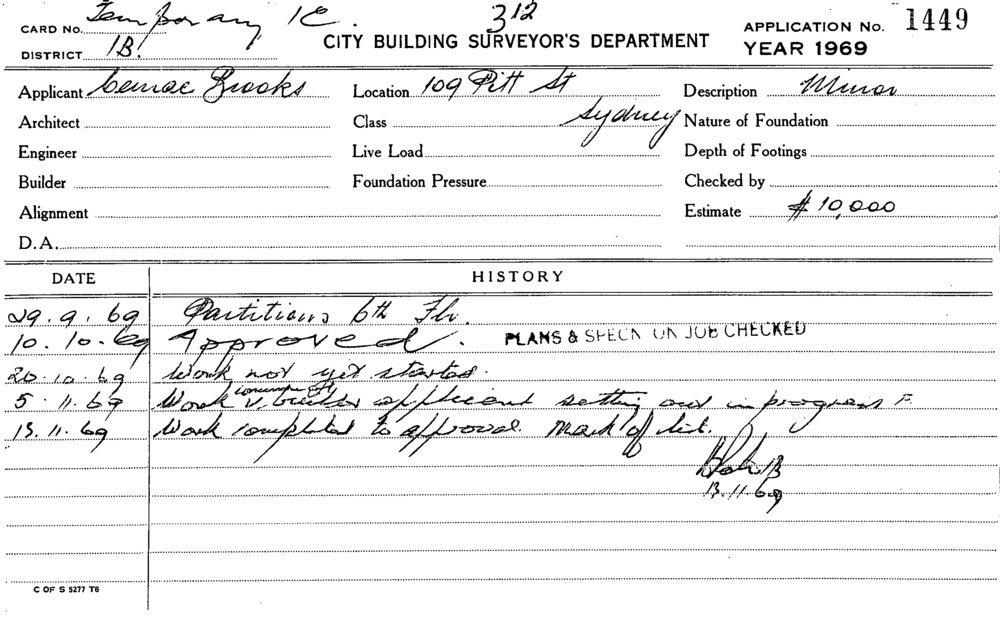 CARD No. Temporary 1C. 312 APPLICATION No. 1449
DISTRICT 1B. CITY BUILDING SURVEYOR'S DEPARTMENT YEAR 1969
Applicant Cemac Brooks Location 109 Pitt St Description Minor
Architect Class Sydney Nature of Foundation
Engineer Live Load Depth of Footings
Builder Foundation Pressure Checked by
Alignment Estimate $10,000
D.A.
DATE HISTORY
29.9.69 Partitions 6th Flr.
10.10.69 Approved. PLANS & SPECN ON JOB CHECKED
20.10.69 Work not yet started.
5.11.69 Work applicant setting out in progress
13.11.69 Work completed to approval. Mark off list.
13.11.69
C OF S 5277 T6